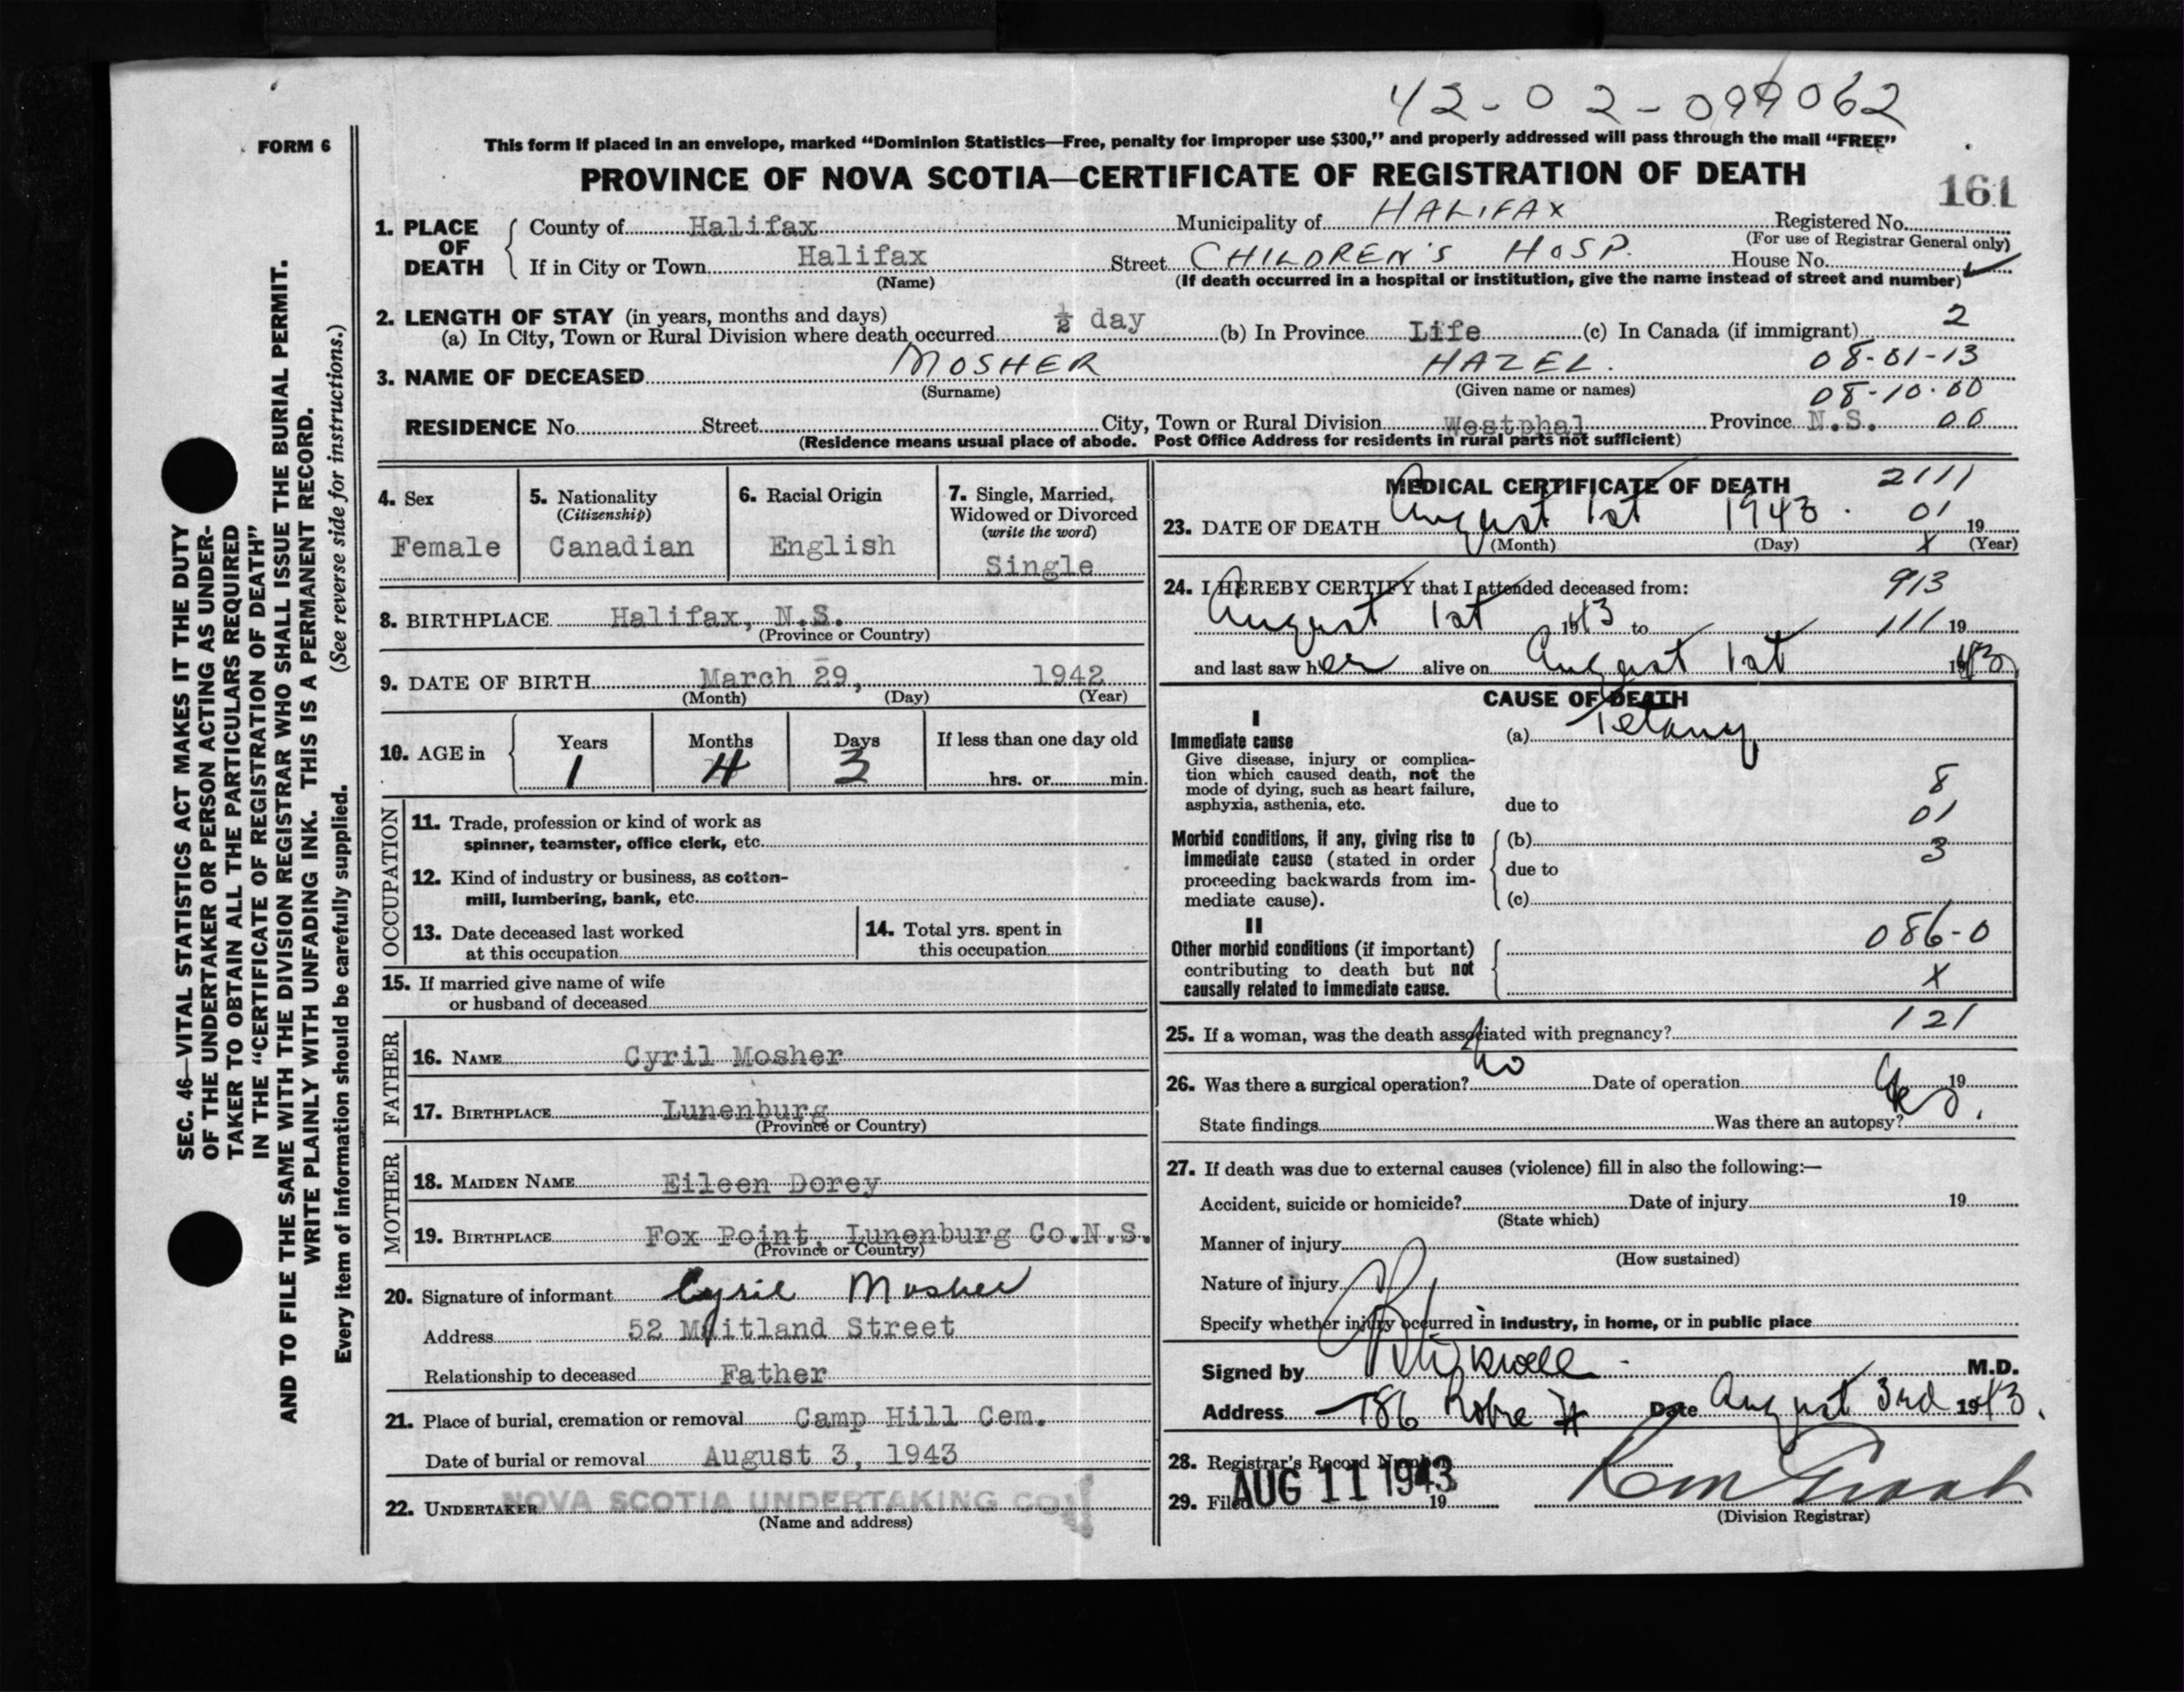 42-02-099062
FORM 6
This form if placed in an envelope, marked "Dominion Statistics—Free, penalty for improper use $300," and properly addressed will pass through the mail "FREE"
PROVINCE OF NOVA SCOTIA—CERTIFICATE OF REGISTRATION OF DEATH
161
1. PLACE OF DEATH County of Halifax Municipality of HALIFAX Registered No.
(For use of Registrar General only)
If in City or Town Halifax Street CHILDREN'S HOSP. House No.
(Name) (If death occurred in a hospital or institution, give the name instead of street and number)
2. LENGTH OF STAY (in years, months and days)
(a) In City, Town or Rural Division where death occurred ½ day (b) In Province Life (c) In Canada (if immigrant) 2
08-01-13
3. NAME OF DECEASED MOSHER HAZEL.
(Surname) (Given name or names) 08-10-00
RESIDENCE No. Street City, Town or Rural Division Westphal Province N.S. 00
(Residence means usual place of abode. Post Office Address for residents in rural parts not sufficient)
4. Sex
Female
5. Nationality
(Citizenship)
Canadian
6. Racial Origin
English
7. Single, Married,
Widowed or Divorced
(write the word)
Single
8. BIRTHPLACE Halifax, N.S.
(Province or Country)
9. DATE OF BIRTH March 29, 1942
(Month) (Day) (Year)
10. AGE in Years Months Days If less than one day old
1 4 3 hrs. or min.
OCCUPATION
11. Trade, profession or kind of work as
spinner, teamster, office clerk, etc.
12. Kind of industry or business, as cotton-
mill, lumbering, bank, etc.
13. Date deceased last worked
at this occupation
14. Total yrs. spent in
this occupation
15. If married give name of wife
or husband of deceased
FATHER
16. NAME Cyril Mosher
17. BIRTHPLACE Lunenburg
(Province or Country)
MOTHER
18. MAIDEN NAME Eileen Dorey
19. BIRTHPLACE Fox Point, Lunenburg Co.N.S.
(Province or Country)
20. Signature of informant Cyril Mosher
Address 52 Maitland Street
Relationship to deceased Father
21. Place of burial, cremation or removal Camp Hill Cem.
Date of burial or removal August 3, 1943
22. UNDERTAKER NOVA SCOTIA UNDERTAKING CO.
(Name and address)
MEDICAL CERTIFICATE OF DEATH 2111
23. DATE OF DEATH August 1st 1943. 01 19
(Month) (Day) X (Year)
24. I HEREBY CERTIFY that I attended deceased from: 913
August 1st 1943 to 111 19
and last saw her alive on August 1st 1943
CAUSE OF DEATH
I
Immediate cause (a) Tetany
Give disease, injury or complica-
tion which caused death, not the
mode of dying, such as heart failure,
asphyxia, asthenia, etc. due to 8
01
Morbid conditions, if any, giving rise to (b)
immediate cause (stated in order 3
proceeding backwards from im- due to
mediate cause). (c)
II
Other morbid conditions (if important) 086-0
contributing to death but not
causally related to immediate cause. X
25. If a woman, was the death associated with pregnancy? 121
26. Was there a surgical operation? No Date of operation 19
State findings Was there an autopsy? Yes.
27. If death was due to external causes (violence) fill in also the following:—
Accident, suicide or homicide? Date of injury 19
(State which)
Manner of injury
(How sustained)
Nature of injury
Specify whether injury occurred in industry, in home, or in public place
Signed by M.D.
Address 186 Date August 3rd 1943.
28. Registrar's Record Number
29. Filed AUG 11 1943 19
(Division Registrar)
SEC. 46—VITAL STATISTICS ACT MAKES IT THE DUTY
OF THE UNDERTAKER OR PERSON ACTING AS UNDER-
TAKER TO OBTAIN ALL THE PARTICULARS REQUIRED
IN THE "CERTIFICATE OF REGISTRATION OF DEATH"
AND TO FILE THE SAME WITH THE DIVISION REGISTRAR WHO SHALL ISSUE THE BURIAL PERMIT.
WRITE PLAINLY WITH UNFADING INK. THIS IS A PERMANENT RECORD.
Every item of information should be carefully supplied. (See reverse side for instructions.)